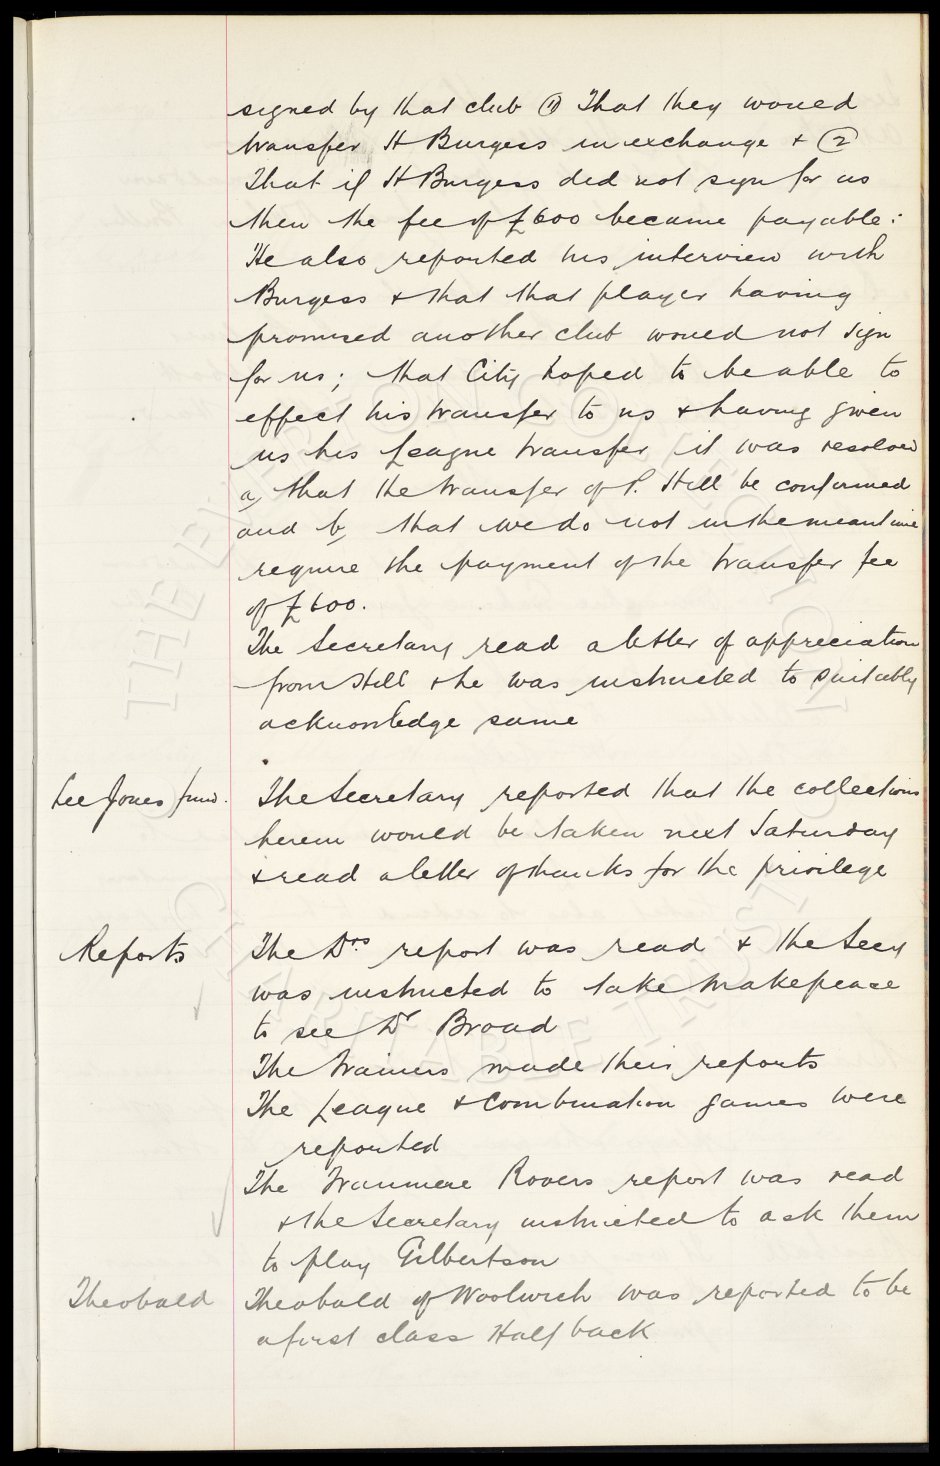 signed by that club (1) That they would
transfer H Burgess in exchange & (2)
That if H Burgess did not sign for us
then the fee of £600 became payable:
He also reported his interview with
Burgess & that that player having
promised another club would not sign
for us; that City hoped to be able to
effect his transfer to us & having given
us his League transfer it was resolved
a, that the transfer of P. Hill be confirmed
and b, that we do not in the meantime
require the payment of the transfer fee
of £600.
The Secretary read a letter of appreciation
from Hill & he was instructed to suitably
acknowledge same
Lee Jones fund.
The Secretary reported that the collections
herein would be taken next Saturday
& read a letter of thanks for the privilege
Reports
The Drs report was read & the Secy
was instructed to take Makepeace
to see Dr Broad
The Trainers made their reports
The League & Combination games were
reported
The Tranmere Rovers report was read
& the Secretary instructed to ask them
to play Gilbertson
Theobald
Theobald of Woolwich was reported to be
a first class Half back